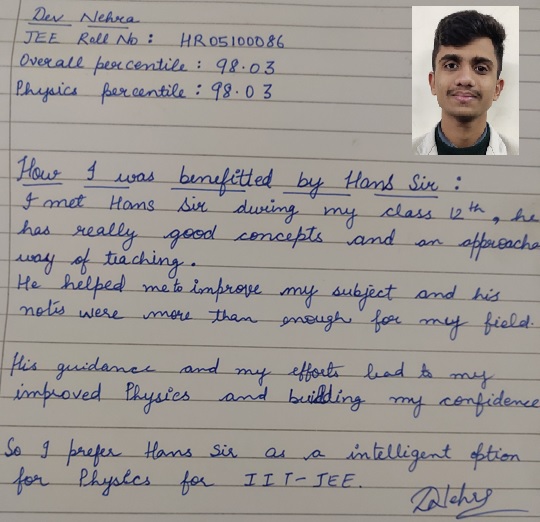 Dev Nehra
JEE Roll No : HR05100086
Overall percentile : 98.03
Physics percentile : 98.03
How I was benefitted by Hans Sir :
I met Hans Sir during my class 12th, he
has really good concepts and an approacha
way of teaching.
He helped me to improve my subject and his
notes were more than enough for my field.
His guidance and my efforts lead to my
improved Physics and building my confidence
So I prefer Hans Sir as a intelligent option
for Physics for IIT-JEE.
DNehra